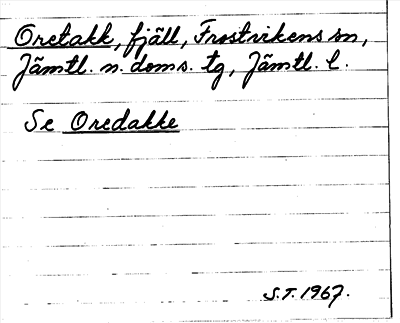 Oretakk, fjäll, Frostvikens sn,
Jämtl. n. doms. tg, Jämtl. l.
Se Oredakke
S.T. 1967.